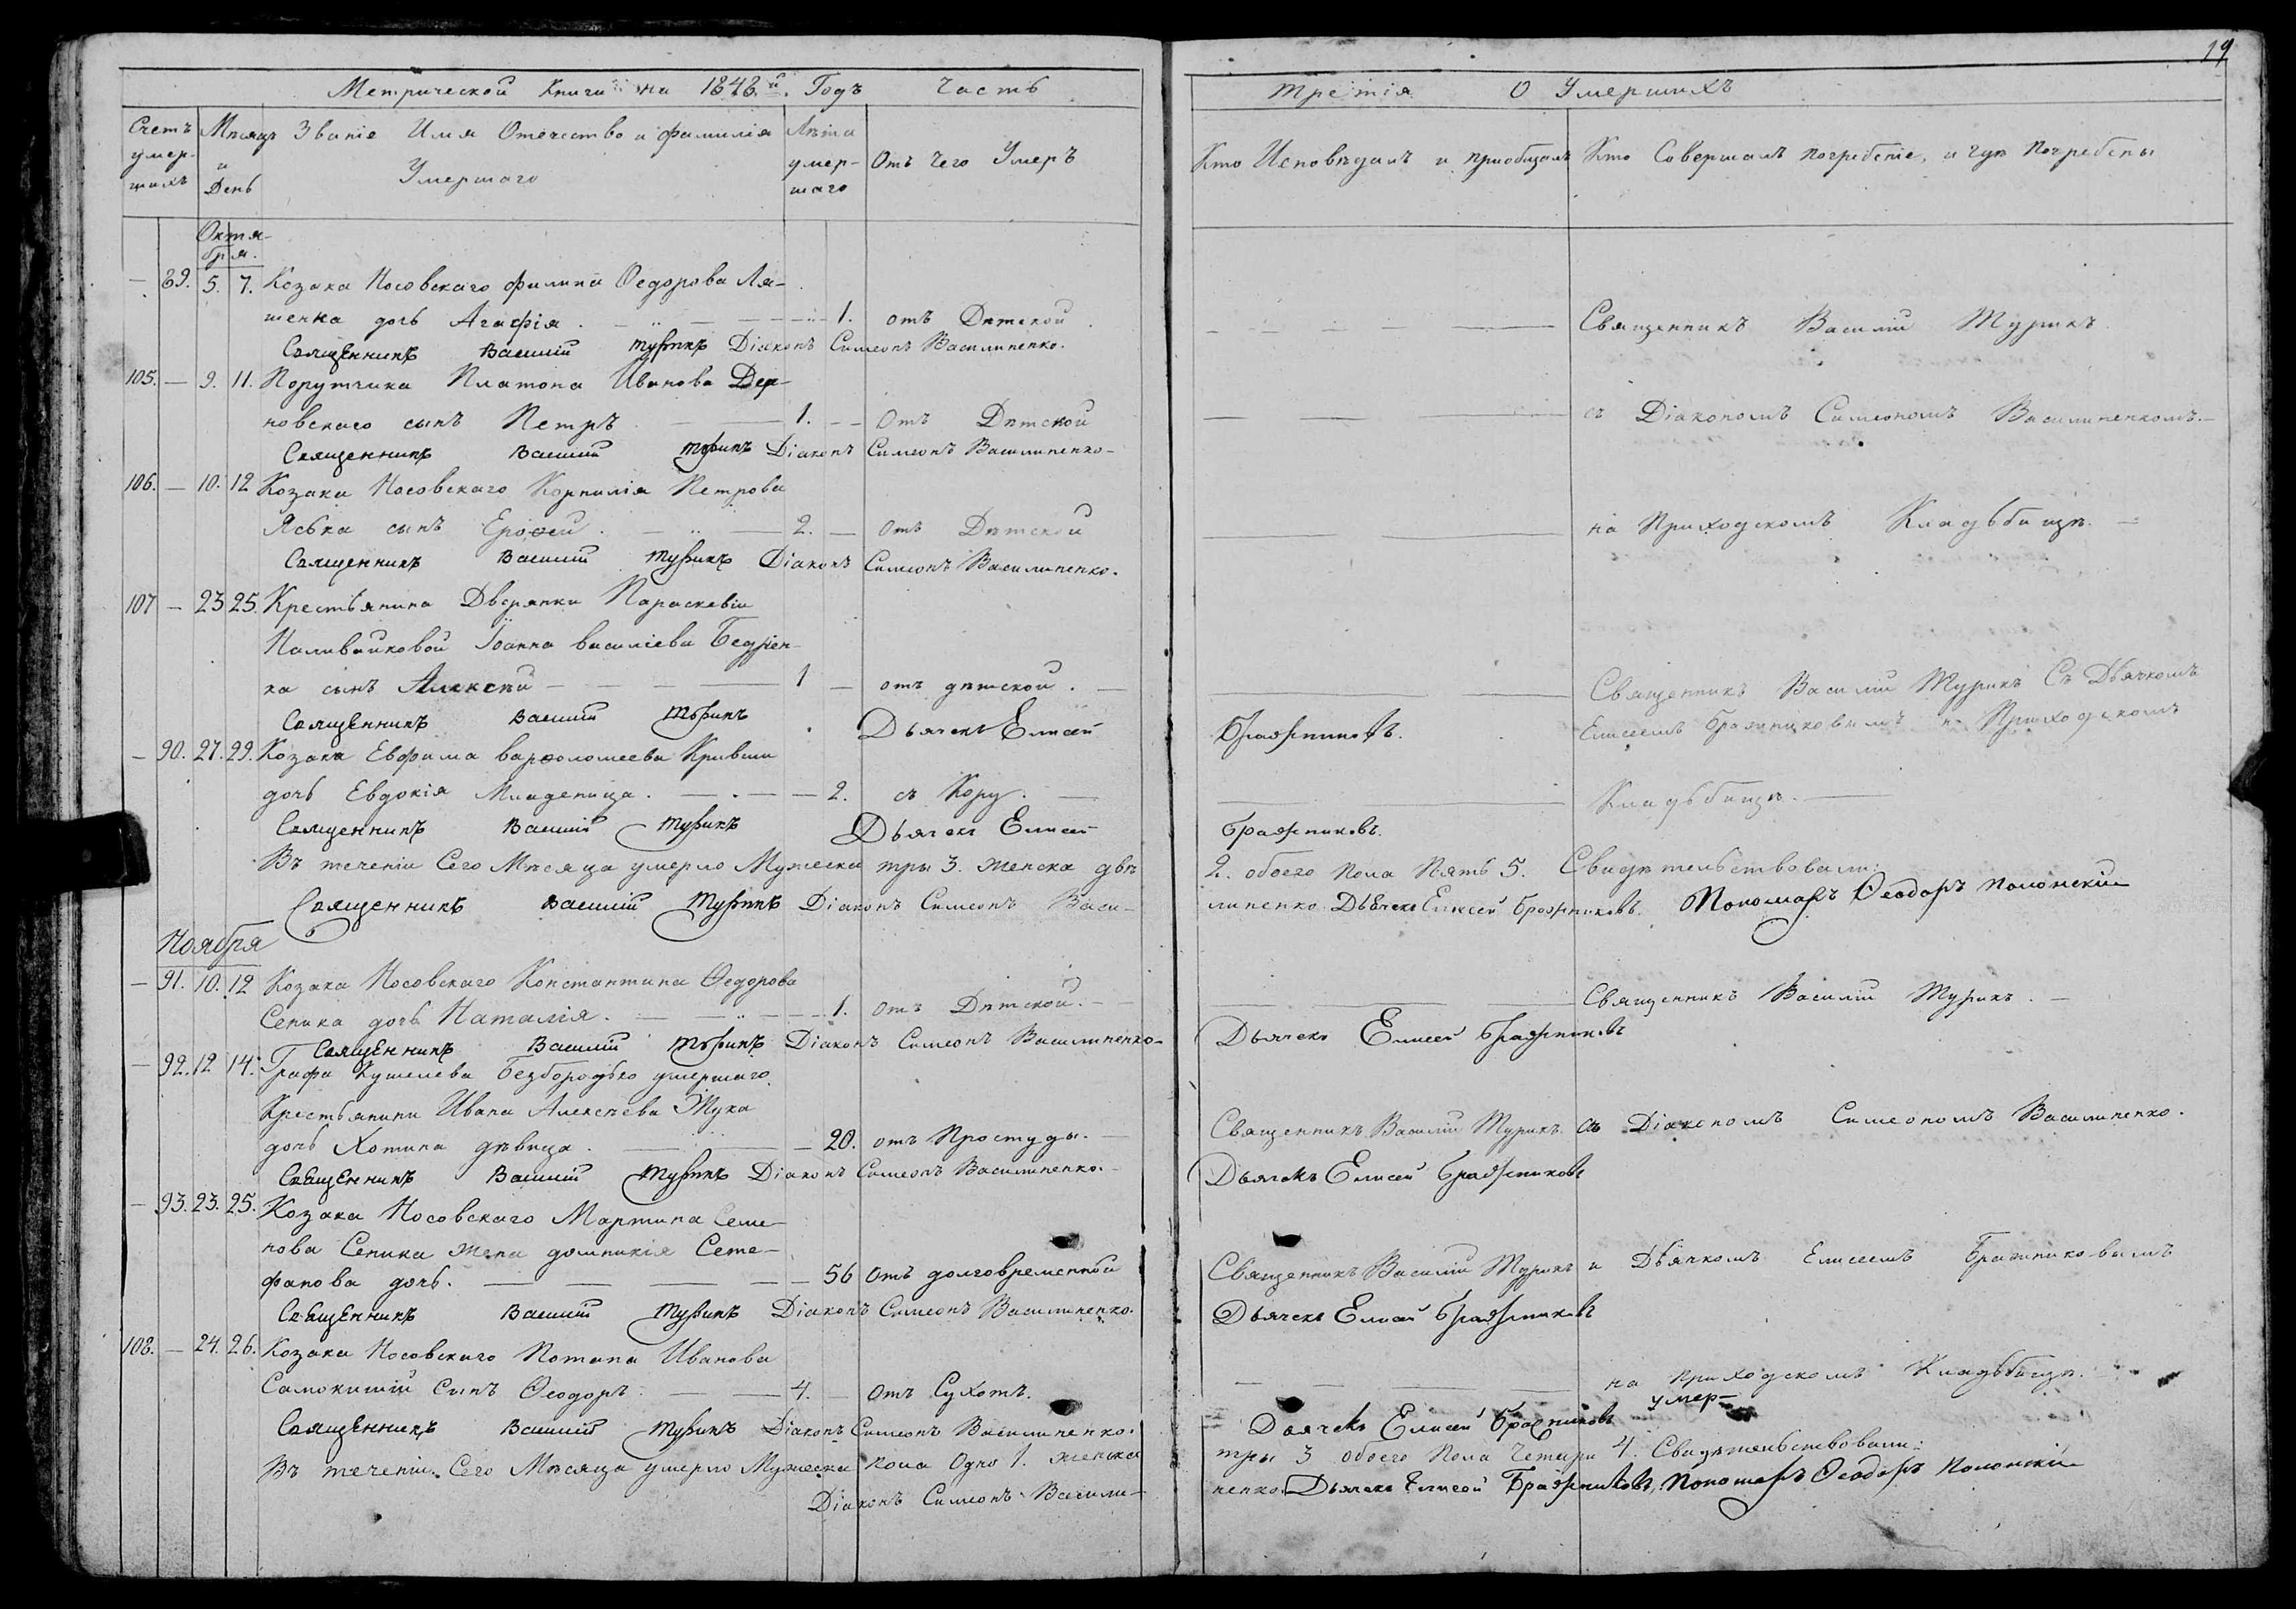 19
Метрической Книги на 1848й. Годъ Часть
третія О Умершихъ
Счетъ умер-шихъ
Мѣсяцъ и День
Званіе Имя Отечество и фамилія Умершаго
Лѣта умер-шаго
Отъ чего Умеръ
Кто Исповѣдалъ и пріобщалъ
Кто Совершалъ погребеніе, и гдѣ погребены
Октя-
бря.
— 89. 5. 7. Козака Носовскаго филипа Ѳедорова Ля-
шенка дочь Агафія. 1. отъ Дѣтской. Священникъ Василій Турикъ.
Священникъ Василій Турикъ Діаконъ Симеонъ Василипенко.
105. — 9. 11. Порутчика Платона Иванова Дер-
новскаго сынъ Петръ 1. Отъ Дѣтской съ Діакономъ Симеономъ Василипенкомъ.
Священникъ Василій Турикъ Діаконъ Симеонъ Василипенко
106. — 10. 12 Козака Носовскаго Корнилія Петрова
Яська сынъ Ероѳей. 2. отъ Дѣтской на Приходскомъ Кладьбищѣ.
Священникъ Василій Турикъ Діаконъ Симеонъ Василипенко.
107 — 23 25. Крестьянина Дворянки Параскевіи
Наливайковой Іоанна василіева
ка сынъ Алексѣй 1 отъ дѣтской. Священникъ Василій Турикъ Съ Дьячкомъ
Священникъ Василій Турикъ Дьячекъ Елисей Бражниковъ. Елисеемъ Бражниковымъ на Приходскомъ
— 90. 27. 29. Козака Евфима варѳоломеева Кривши
дочь Евдокія Младеница. 2. съ Кору. Кладьбищѣ.
Священникъ Василій Турикъ Дьячекъ Елисей Бражниковъ.
Въ теченіи Сего Мѣсяца умерло Мужеска тры 3. женска двѣ 2. обоего пола Пять 5. Свидѣтельствовали:
Священникъ Василій Турикъ Діаконъ Симеонъ Васи-липенко Дьячекъ Елисей Бражниковъ. Пономарь Ѳеодоръ Полонскій
Ноября
— 91. 10. 12 Козака Носовскаго Константина Ѳедорова
Сепика дочь Наталія. 1. отъ Дѣтской. Священникъ Василій Турикъ.
Священникъ Василій Турикъ Діаконъ Симеонъ Василипенко Дьячекъ Елисей Бражниковъ
— 92. 12 14. Графа Кушелева Безбородько умершаго
Крестьянина Ивана Алексѣева Жука
дочь Хотина дѣвица. 20. отъ Простуды. Священникъ Василій Турикъ. Съ Діакономъ Симеономъ Василипенко.
Священникъ Василій Турикъ Діаконъ Симеонъ Василипенко. Дьячекъ Елисей Бражниковъ
— 93. 23. 25. Козака Носовскаго Мартина Семе-
нова Сепика жена домникія Сте-
фанова дочь. 56 Отъ долговременной Священникъ Василій Турикъ и Дьячкомъ Елисеемъ Бражниковымъ
Священникъ Василій Турикъ Діаконъ Симеонъ Василипенко. Дьячекъ Елисей Бражниковъ
108. — 24. 26. Козака Носовскаго Потапа Иванова
Самокишій Сынъ Ѳеодоръ. 4. отъ Сухотъ. на приходскомъ Кладьбищѣ.
Священникъ Василій Турикъ Діаконъ Симеонъ Василипенко. Дьячекъ Елисей Бражниковъ умер-
Въ теченіи Сего Мѣсяца умерло Мужеска пола Одно 1. женска тры 3 обоего пола Четыри 4. Свидѣтельствовали:
Діаконъ Симеонъ Васили-пенко. Дьячекъ Елисей Бражниковъ, Пономарь Ѳеодоръ Полонскій